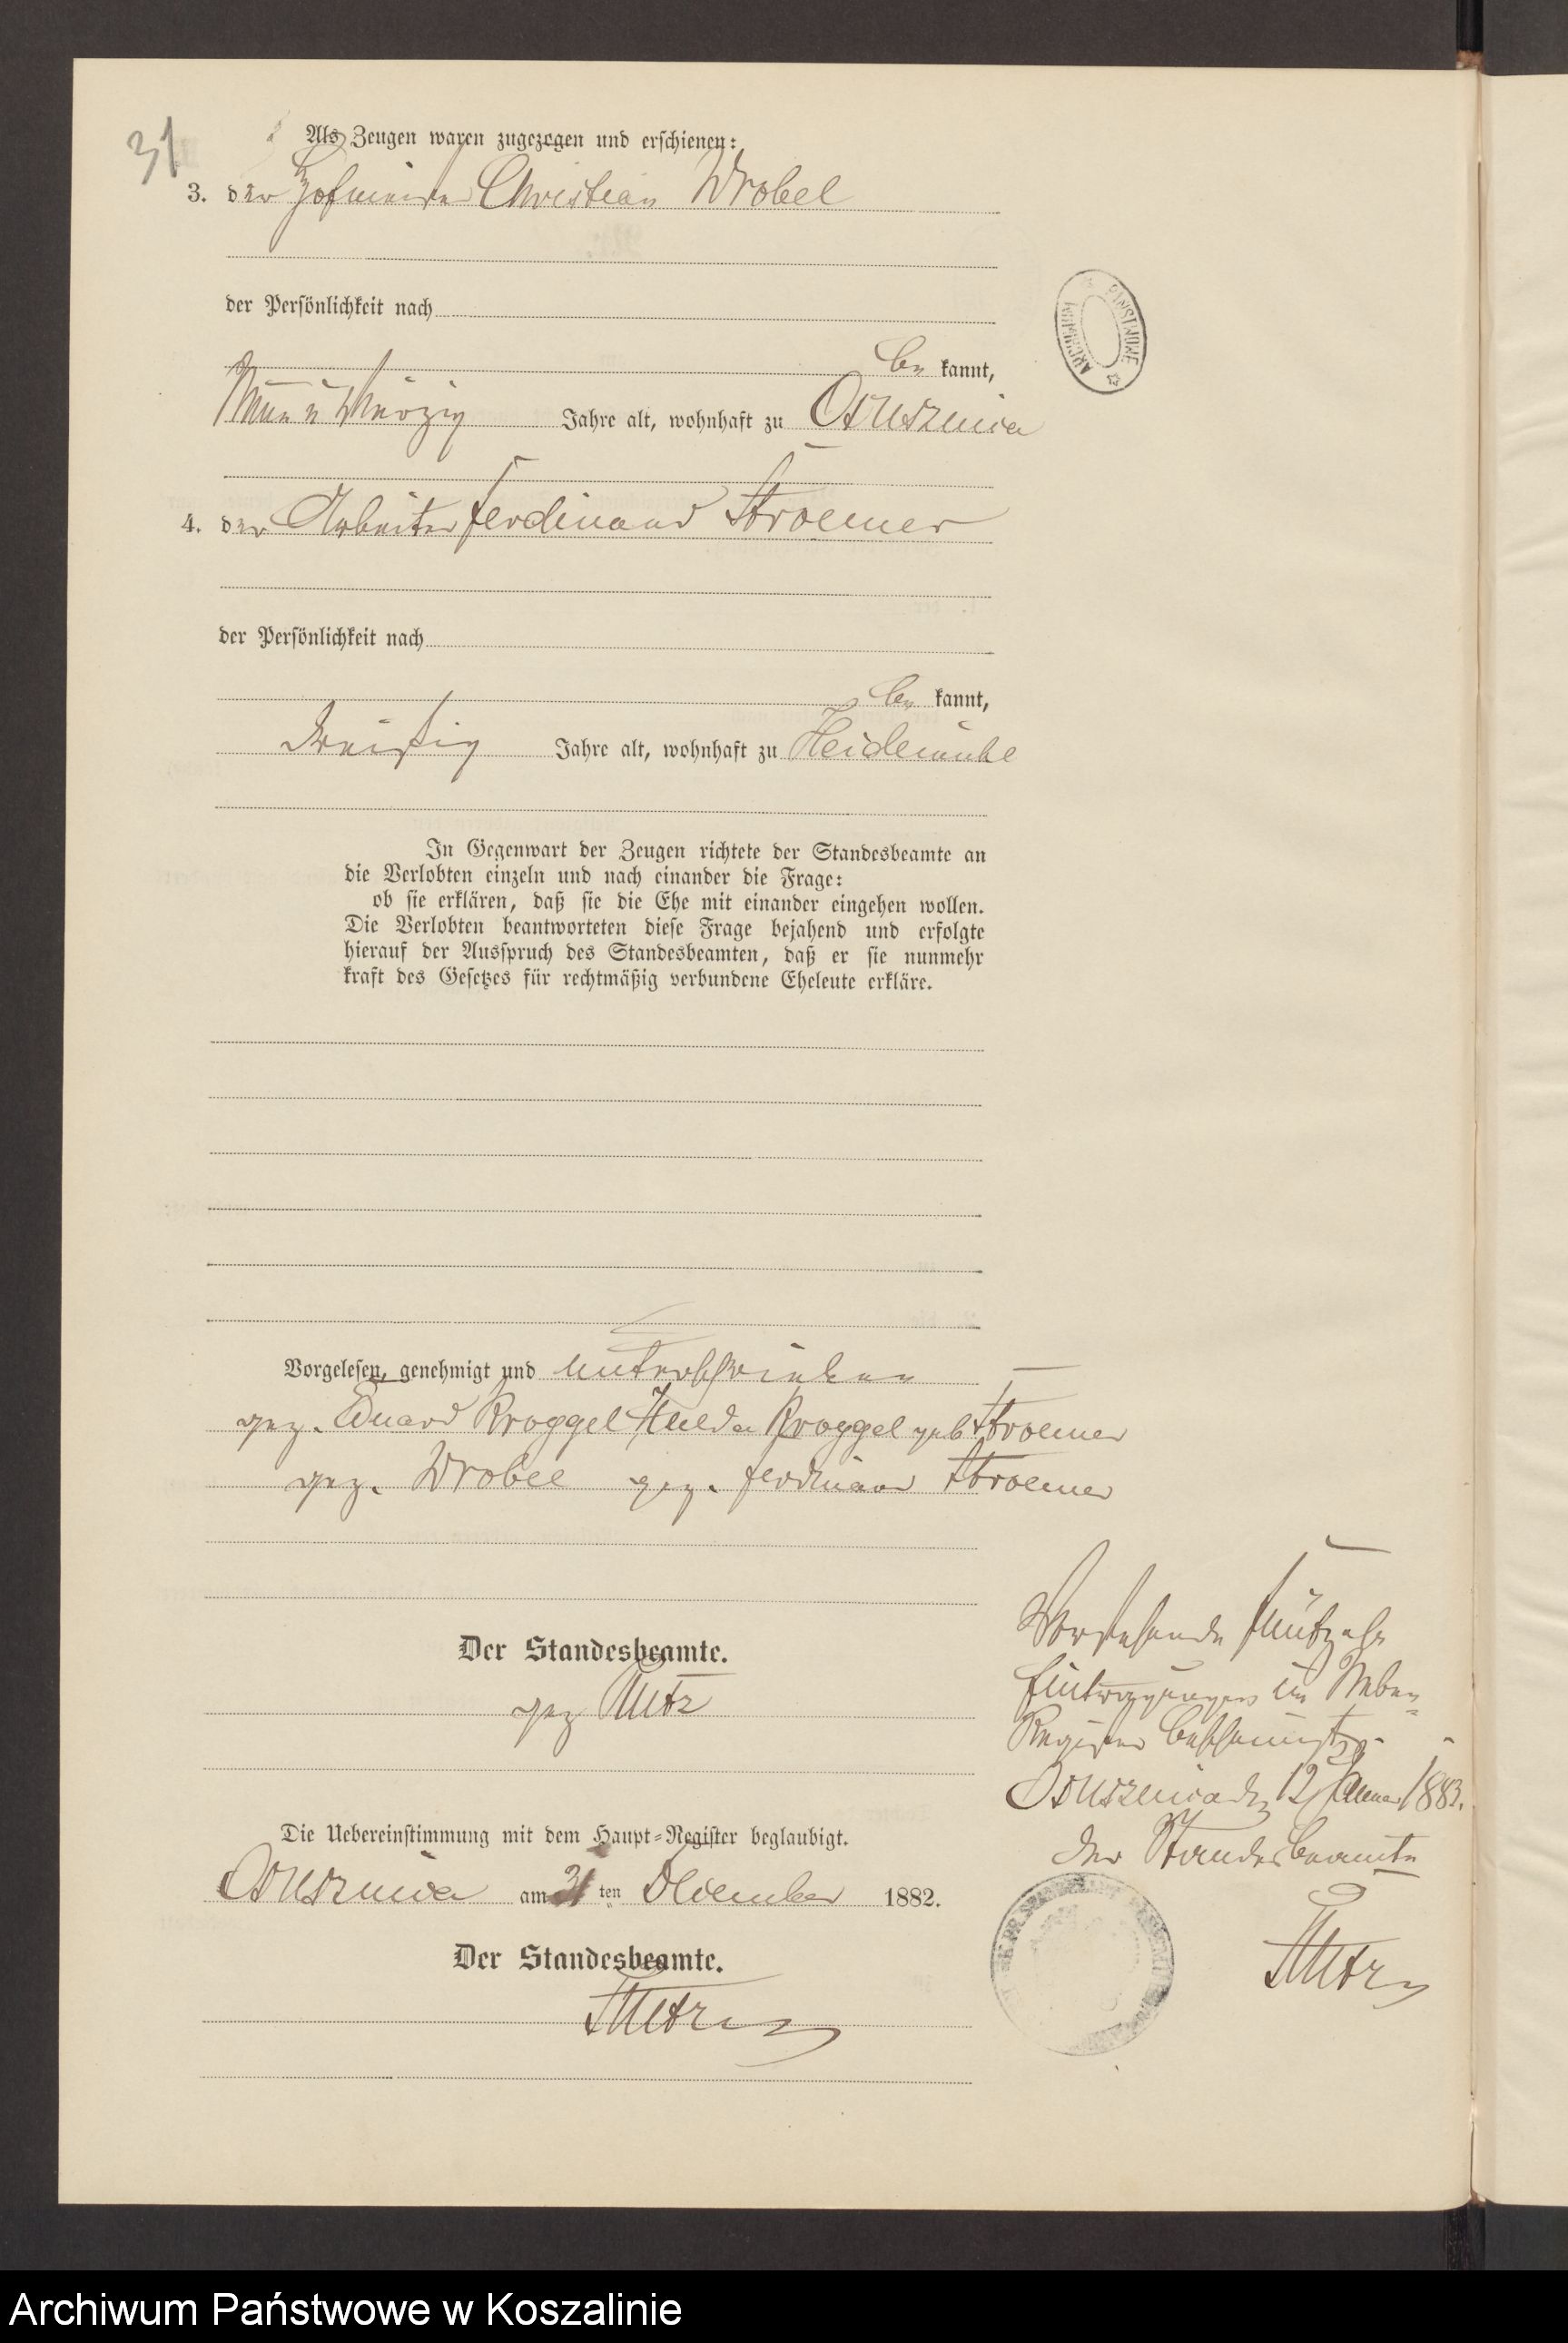 31
Als Zeugen waren zugezogen und erschienen:
3. der Hofmeister Christian Wrobel
der Persönlichkeit nach
be kannt,
Jahre alt, wohnhaft zu Ossusznica
4. der Arbeiter Ferdinand Stroemer
der Persönlichkeit nach
be kannt,
dreißig Jahre alt, wohnhaft zu Heidemühl
In Gegenwart der Zeugen richtete der Standesbeamte an
die Verlobten einzeln und nach einander die Frage:
ob sie erklären, daß sie die Ehe mit einander eingehen wollen.
Die Verlobten beantworteten diese Frage bejahend und erfolgte
hierauf der Ausspruch des Standesbeamten, daß er sie nunmehr
kraft des Gesetzes für rechtmäßig verbundene Eheleute erkläre.
Vorgelesen, genehmigt und unterschrieben
gez. Eduard Kroggel Hulda Kroggel geb Stroemer
gez. Wrobel gez. Ferdinand Stroemer
Der Standesbeamte.
gez
Die Uebereinstimmung mit dem Haupt-Register beglaubigt.
am 31 ten Dezember 1882.
Der Standesbeamte.
Vorstehende fünfzehn
Eintragungen im Neben=
Register bescheinigt.
12 Januar 1883.
Der Standesbeamte
ARCHIWUM PAŃSTWOWE
Archiwum Państwowe w Koszalinie